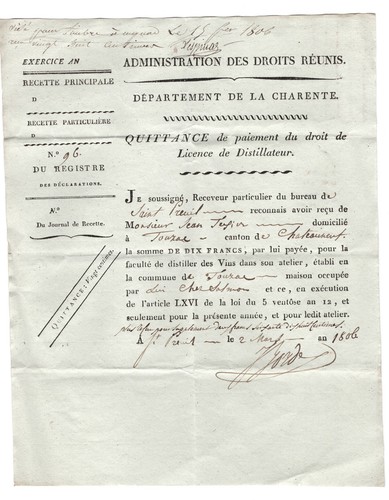 pour timbre
Le 15 fer 1806
EXERCICE AN
RECETTE PRINCIPALE
D
RECETTE PARTICULIÈRE
D
N.º 96.
DU REGISTRE
DES DÉCLARATIONS.
N.º
Du Journal de Recette.
QUITTANCE, Vingt centimes.
ADMINISTRATION DES DROITS RÉUNIS.
DÉPARTEMENT DE LA CHARENTE.
QUITTANCE de paiement du droit de
Licence de Distillateur.
JE soussigné, Receveur particulier du bureau de
Saint Preuil reconnais avoir reçu de
Monsieur Jean domicilié
à Touzac canton de Chateauneuf
la somme DE DIX FRANCS, par lui payée, pour la
faculté de distiller des Vins dans son atelier, établi en
la commune de Touzac maison occupée
par Lui et ce, en exécution
de l'article LXVI de la loi du 5 ventôse an 12, et
seulement pour la présente année, et pour ledit atelier.
plus pour supplement
A St Preuil le 2 Mars an 1806